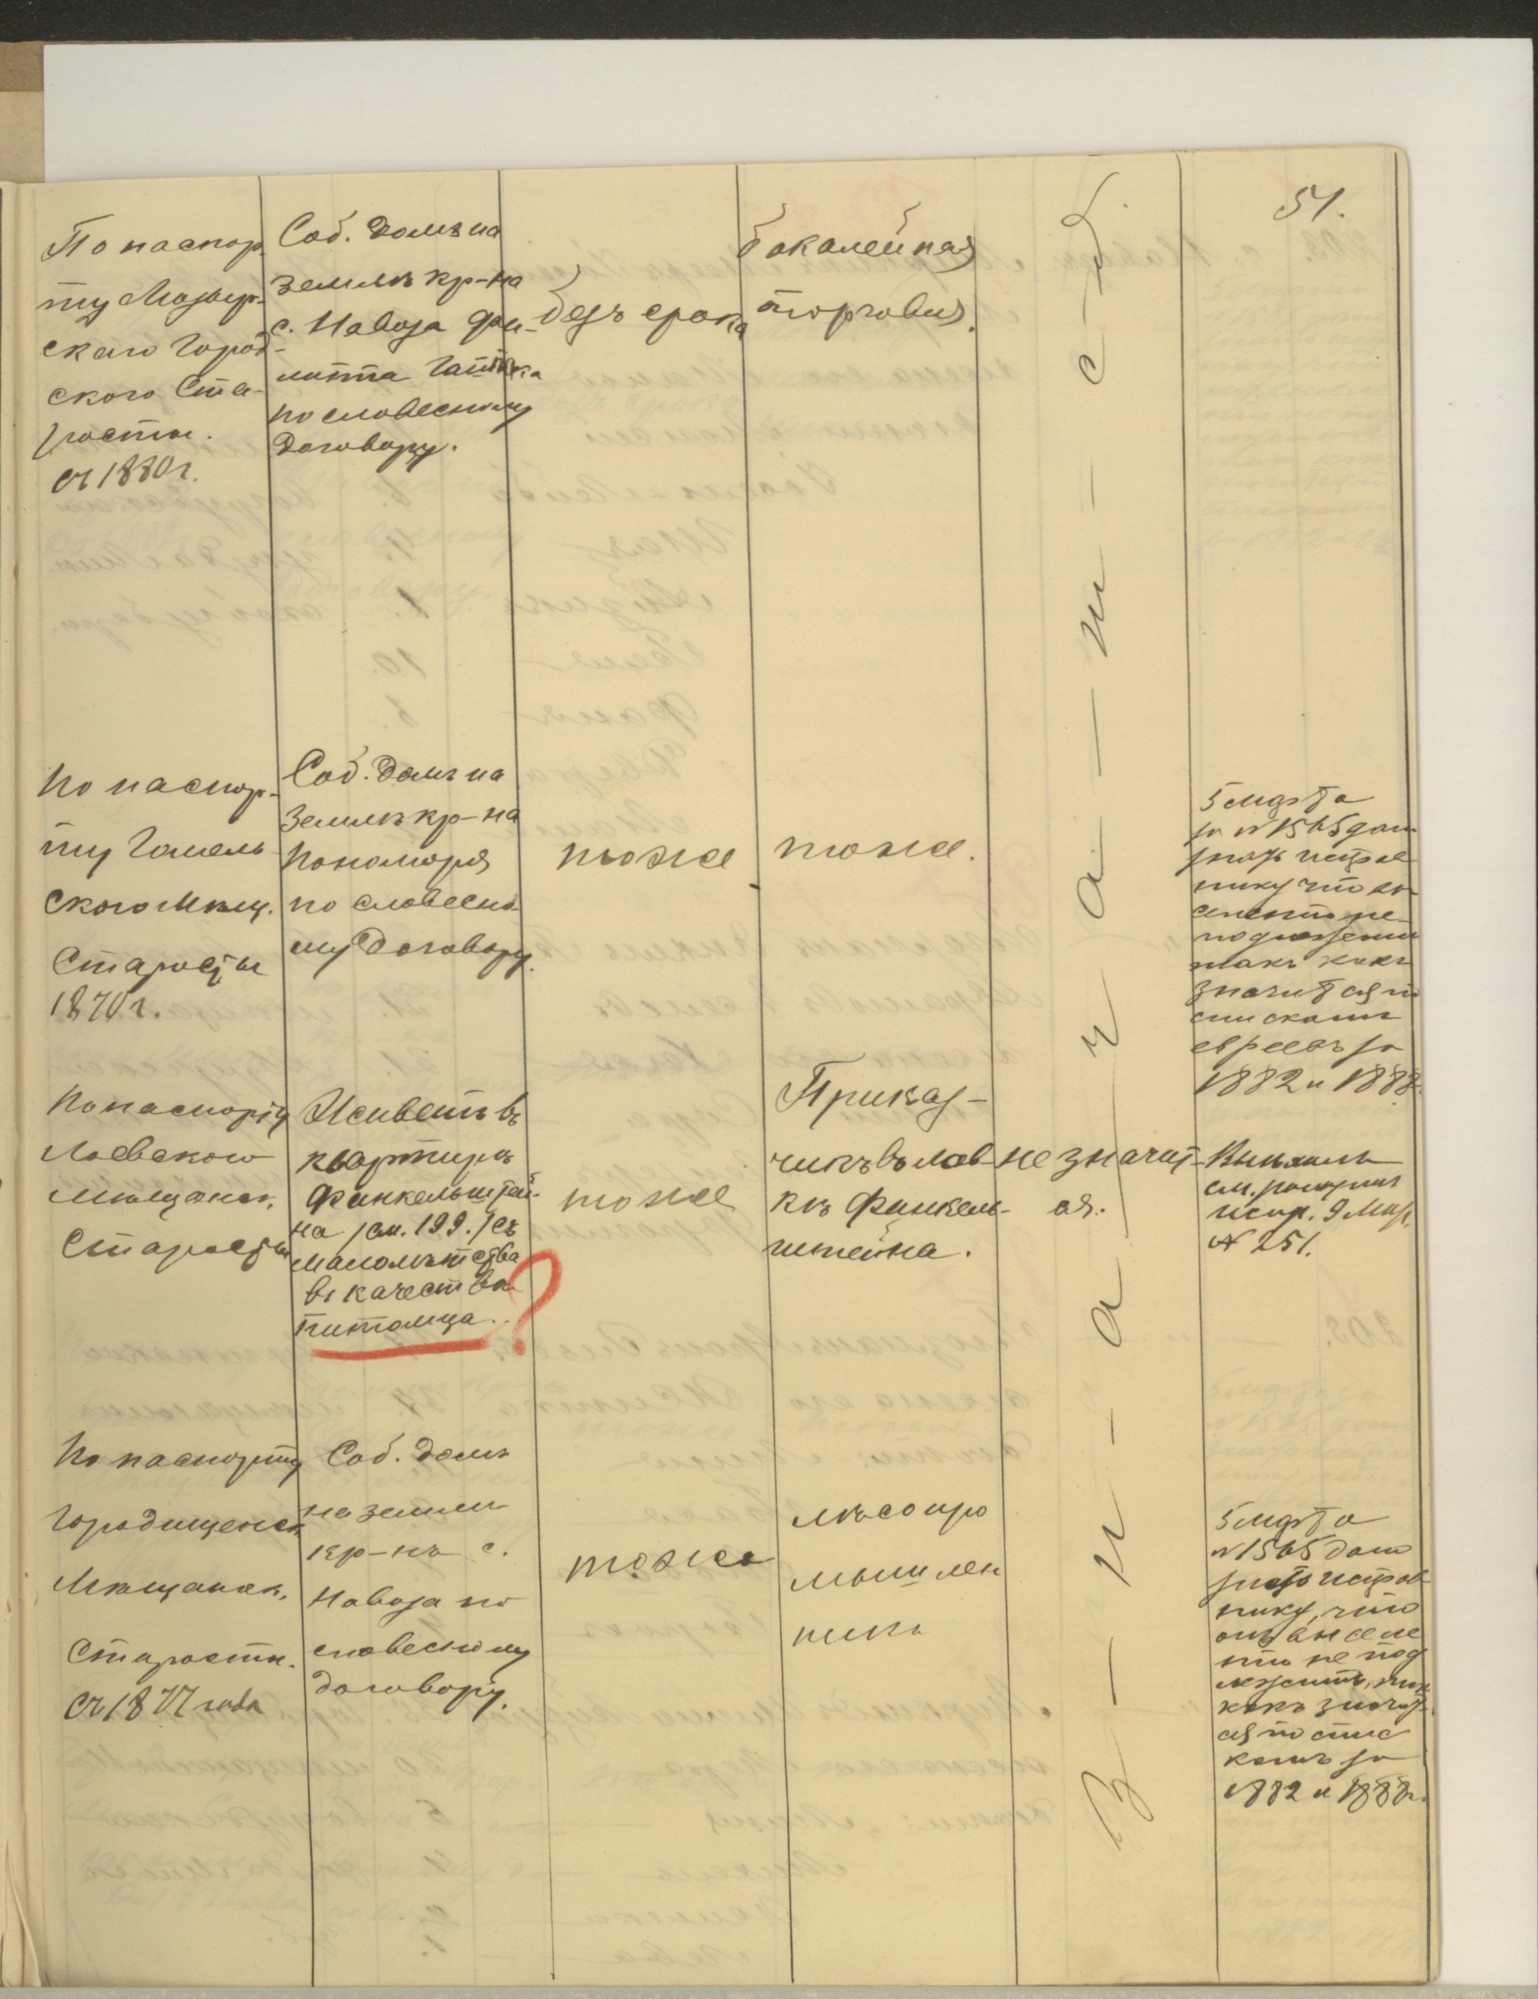 51.
По паспор-
ту Мозыр-
скаго Город-
ского Ста-
росты.
съ 1880 г.
Соб. домъ на
землѣ кр-на
с. Навоза Фи-
липпа
по словесному
договору.
безъ срока
бакалейная
торговля.
По паспор-
ту Гомель
ского Мѣщ.
Старосты
1870 г.
Соб. домъ на
землѣ кр-на
Пономаря
по словесно-
му договору.
тоже
тоже.
5 марта
за № 1565 дано
знать исправ
нику что вы
селенію не
подлежитъ
такъ какъ
значится по
спискамъ
евреевъ за
1882 и 1888
По паспорту
Лоевского
Мѣщанск.
Старосты
Живетъ въ
квартирѣ
Финкельштей-
на /см. 199./ съ
малолѣтства
въ качествѣ
питомца..
?
тоже
Приказ-
чикъ въ лав-
кѣ Финкель-
штейна.
не значит-
ся.
Выѣхалъ
см. рапортъ
испр. 9 Мар.
№ 251.
По паспорту
Городищенск.
Мѣщанск.
Старосты.
съ 1877 года
Соб. домъ
на земли
кр-нъ с.
Навоза по
словесному
договору.
тоже
лѣсопро
мышлен
никъ
5 марта
№ 1565 дано
знать исправ
нику, что
онъ выселе
нію не под
лежитъ, так
какъ значит
ся по спис
камъ за
1882 и 1888 г.
З-н-а-ч-а-т-с-я.